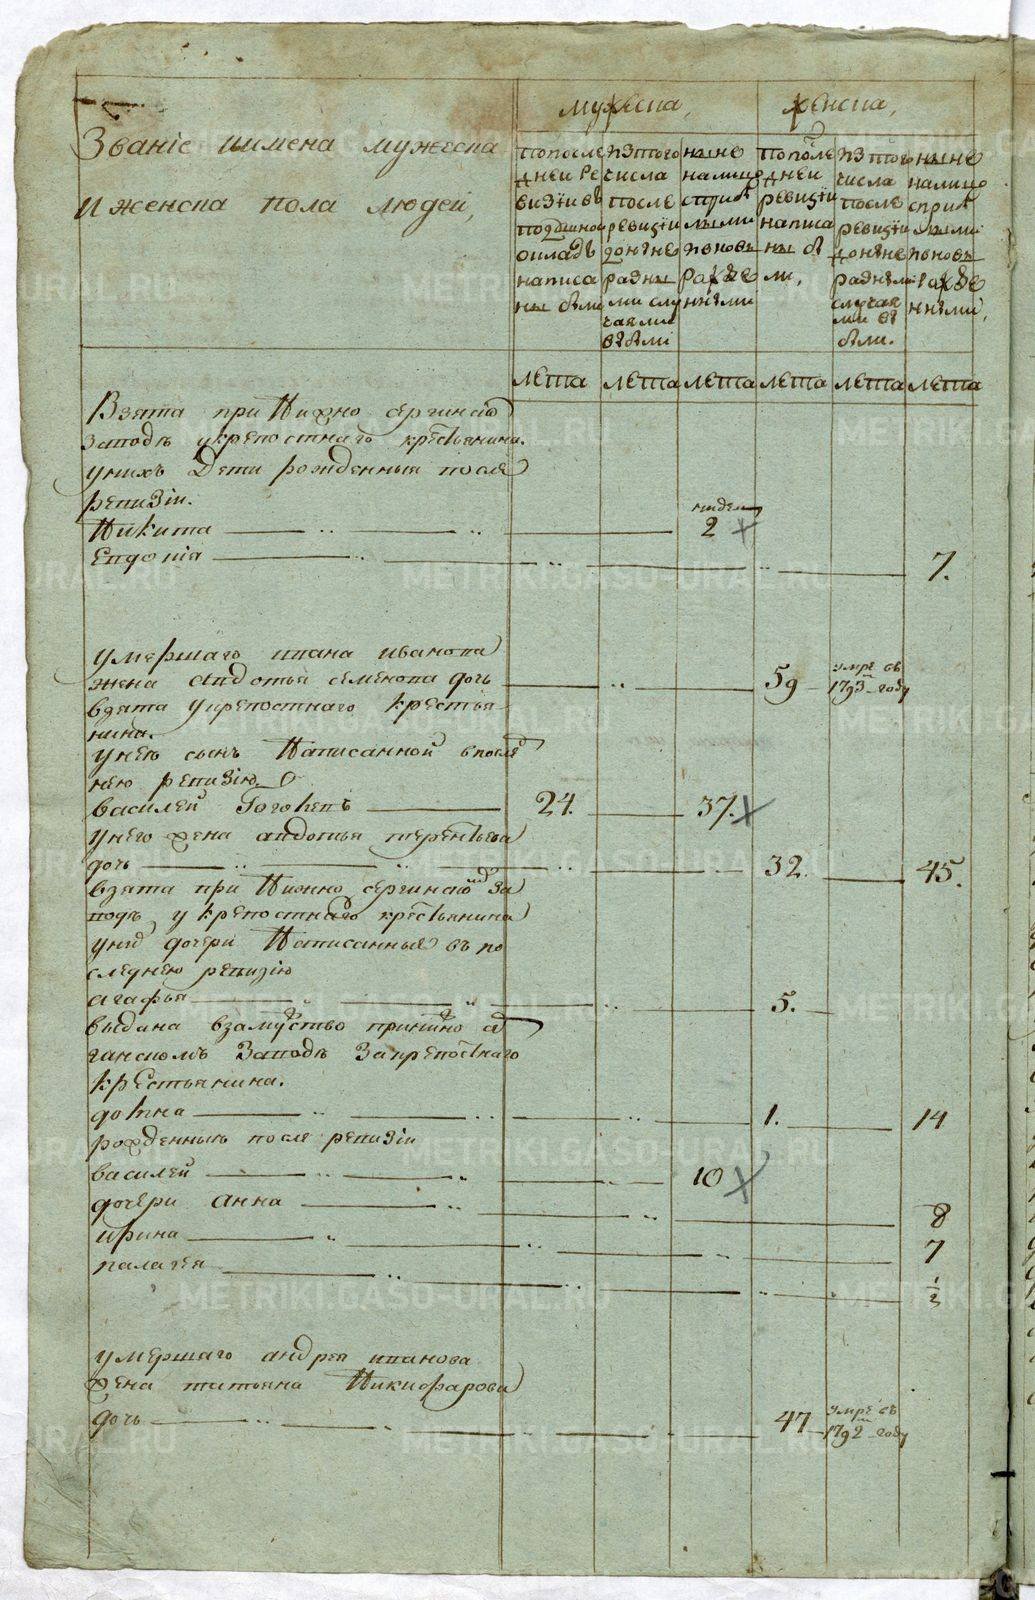 мужеска,
женска,
Званіе иимена мужеска
И женска пола людей,
попосле
дней Ре
визіи въ
подушной
окладъ
написа
ны были
изтого
числа
после
ревизіи
доныне
разны
ми слу
чаями
выбыли
ныне
налицо
сприб
лыми
вновь
Рожде
нными
Попосле
дней
ревизіи
написа
ны бы
ли,
изтого
числа
после
ревизіи
доныне
разными
случая
ми вы
были.
ныне
налицо
сприб
лыми
вновь
рожде
нными,
лета лета лета лета лета лета
Взята при Нижно сергинско
заводъ укрепостнаго крестьянина.
унихъ Дети рожденныя после
ревизіи.
Никита 2
Евдокія 7.
умершаго ивана иванова
жена авдотья семенова дочь 59 умре въ
1793 году
взята укрепостнаго крестья
нина.
унея сынъ Написанной впосле
нею ревизію
василей 24. 37.
унего жена авдотья терентьева
дочь 32. 45.
взята при Нижно сергинско за
водъ укрепостнаго крестьянина
уних дочери Написанныя въ по
следнею ревизію
агафья 5.
выдана взамужство
заводъ закрепостнаго
крестьянина.
1. 14
рожденныя после ревизіи
василей 10
дочери анна 8
ирина 7
палагея 1/2
умершаго андрея иванова
жена татьяна Никифарова
дочь 47 умре въ
1792 году
METRIKI.GASO-URAL.RU